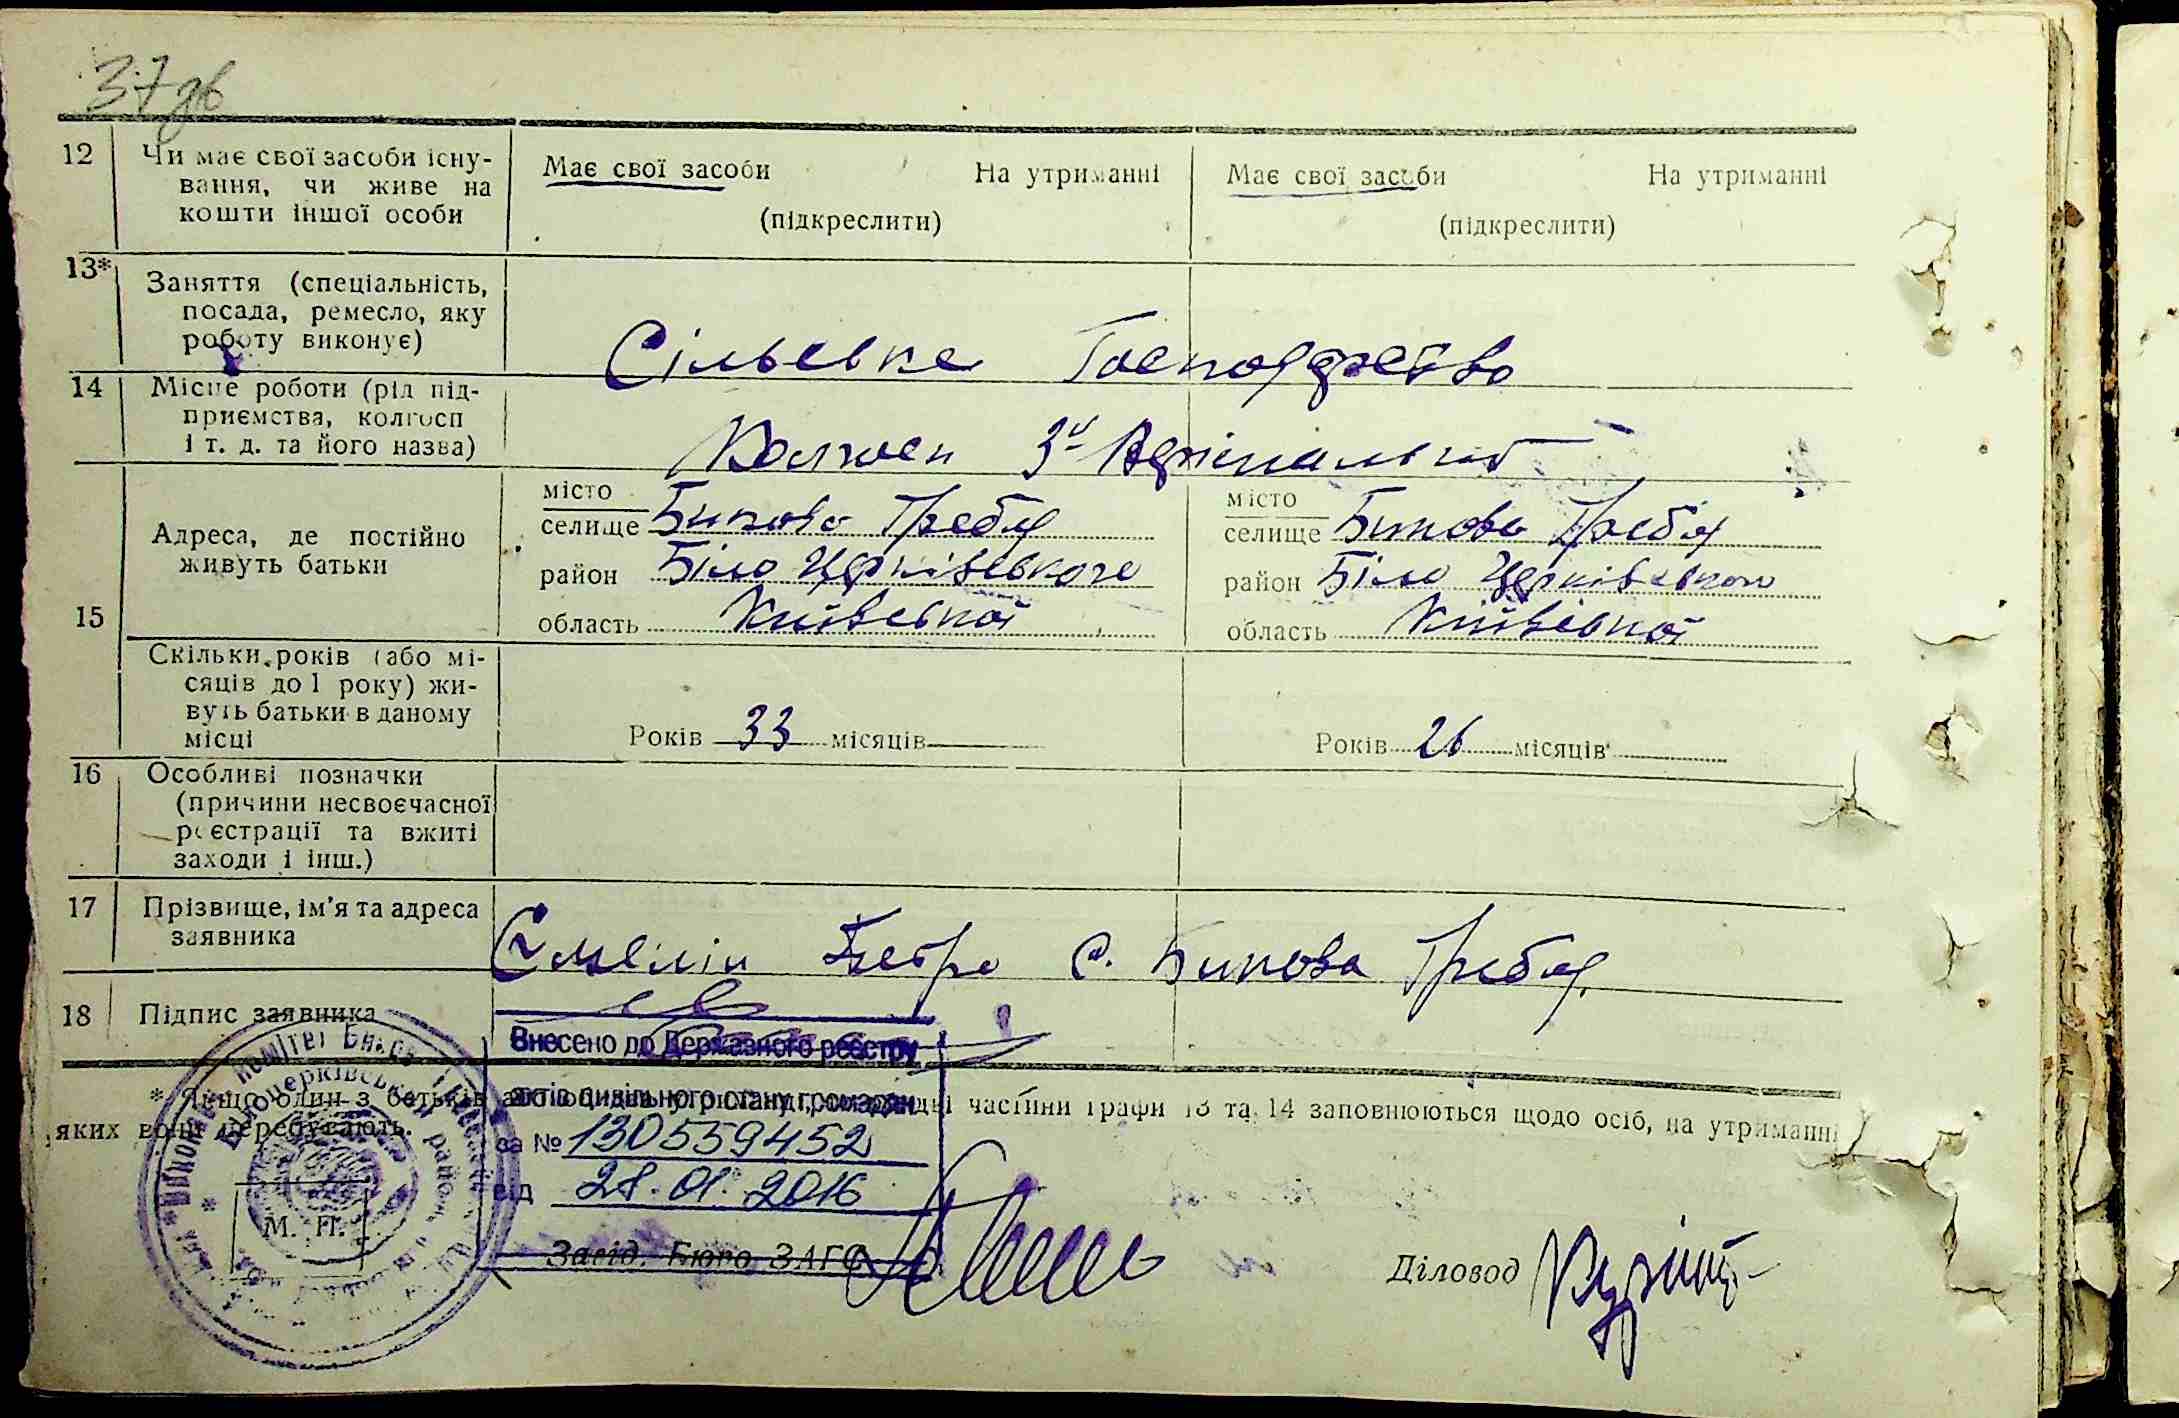 37дв
12 Чи має свої засоби існу-
вання, чи живе на
кошти іншої особи
Має свої засоби На утриманні
(підкреслити)
Має свої засоби На утриманні
(підкреслити)
13* Заняття (спеціальність,
посада, ремесло, яку
роботу виконує)
Сільське Господрство
14 Місце роботи (рід під-
приємства, колгосп
і т. д. та його назва)
Колгосп 3й
15 Адреса, де постійно
живуть батьки
місто
селище Бикова Гребля
район Біло Церківського
область Київської
місто
селище Бикова Гребля
район Біло Церківського
область Київської
Скільки років (або мі-
сяців до 1 року) жи-
вуть батьки в даному
місці
Років 33 місяців
Років 26 місяців
16 Особливі позначки
(причини несвоєчасної
реєстрації та вжиті
заходи і інш.)
17 Прізвище, ім'я та адреса
заявника
Петро с. Бикова Гребля
18 Підпис заявника
Внесено до Державного реєстру
актів цивільного стану громадян
за № 130559452
від 28.01.2016
* Якщо один з батьків частини графи 13 та 14 заповнюються щодо осіб, на утриманні
яких вони перебувають.
М. П.
Завід. Бюро ЗАГС
Діловод